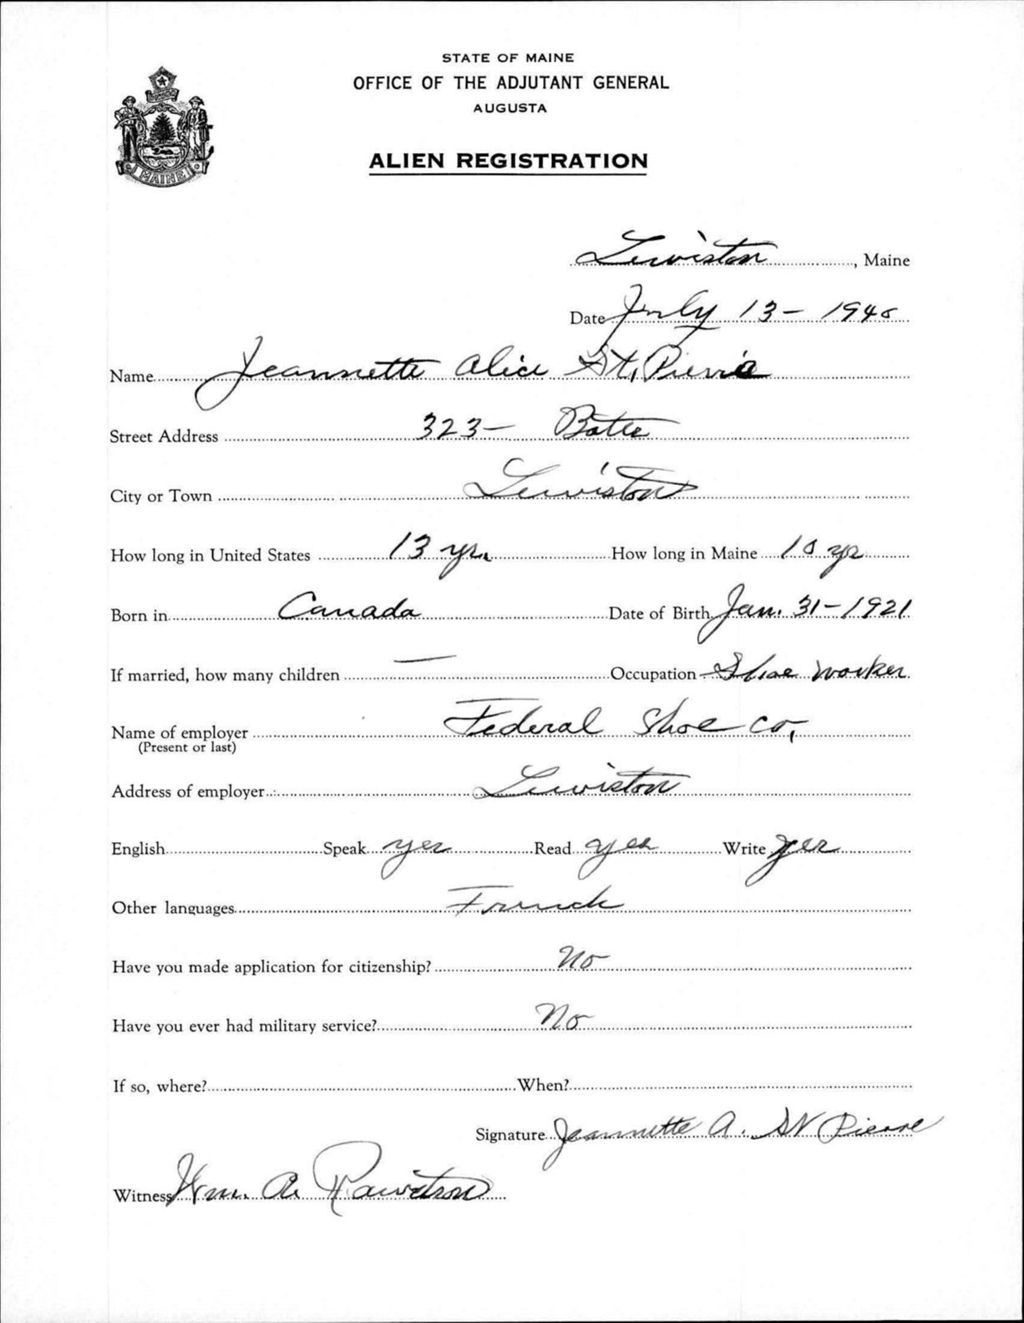 STATE OF MAINE
OFFICE OF THE ADJUTANT GENERAL
AUGUSTA
MAINE
ALIEN REGISTRATION
Lewiston, Maine
Date July 13 - 1940
Name Jeannette Alice St. Pierre
Street Address 323 - Bates
City or Town Lewiston
How long in United States 13 yrs. How long in Maine 10 yr
Born in Canada Date of Birth Jan. 31 - 1921
If married, how many children — Occupation Shoe Worker
Name of employer Federal Shoe Co.
(Present or last)
Address of employer Lewiston
English Speak yes Read yes Write yes
Other languages French
Have you made application for citizenship? No
Have you ever had military service? No
If so, where? When?
Signature Jeannette A. St Pierre
Witness Wm. A.